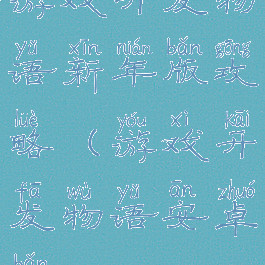 游戏开发物
yǔ xīn nián bǎn gōng
语新年版攻
lüè yóu xì kāi
略(游戏开
fā wù yǔ ān zhuó
发物语安卓
bǎn